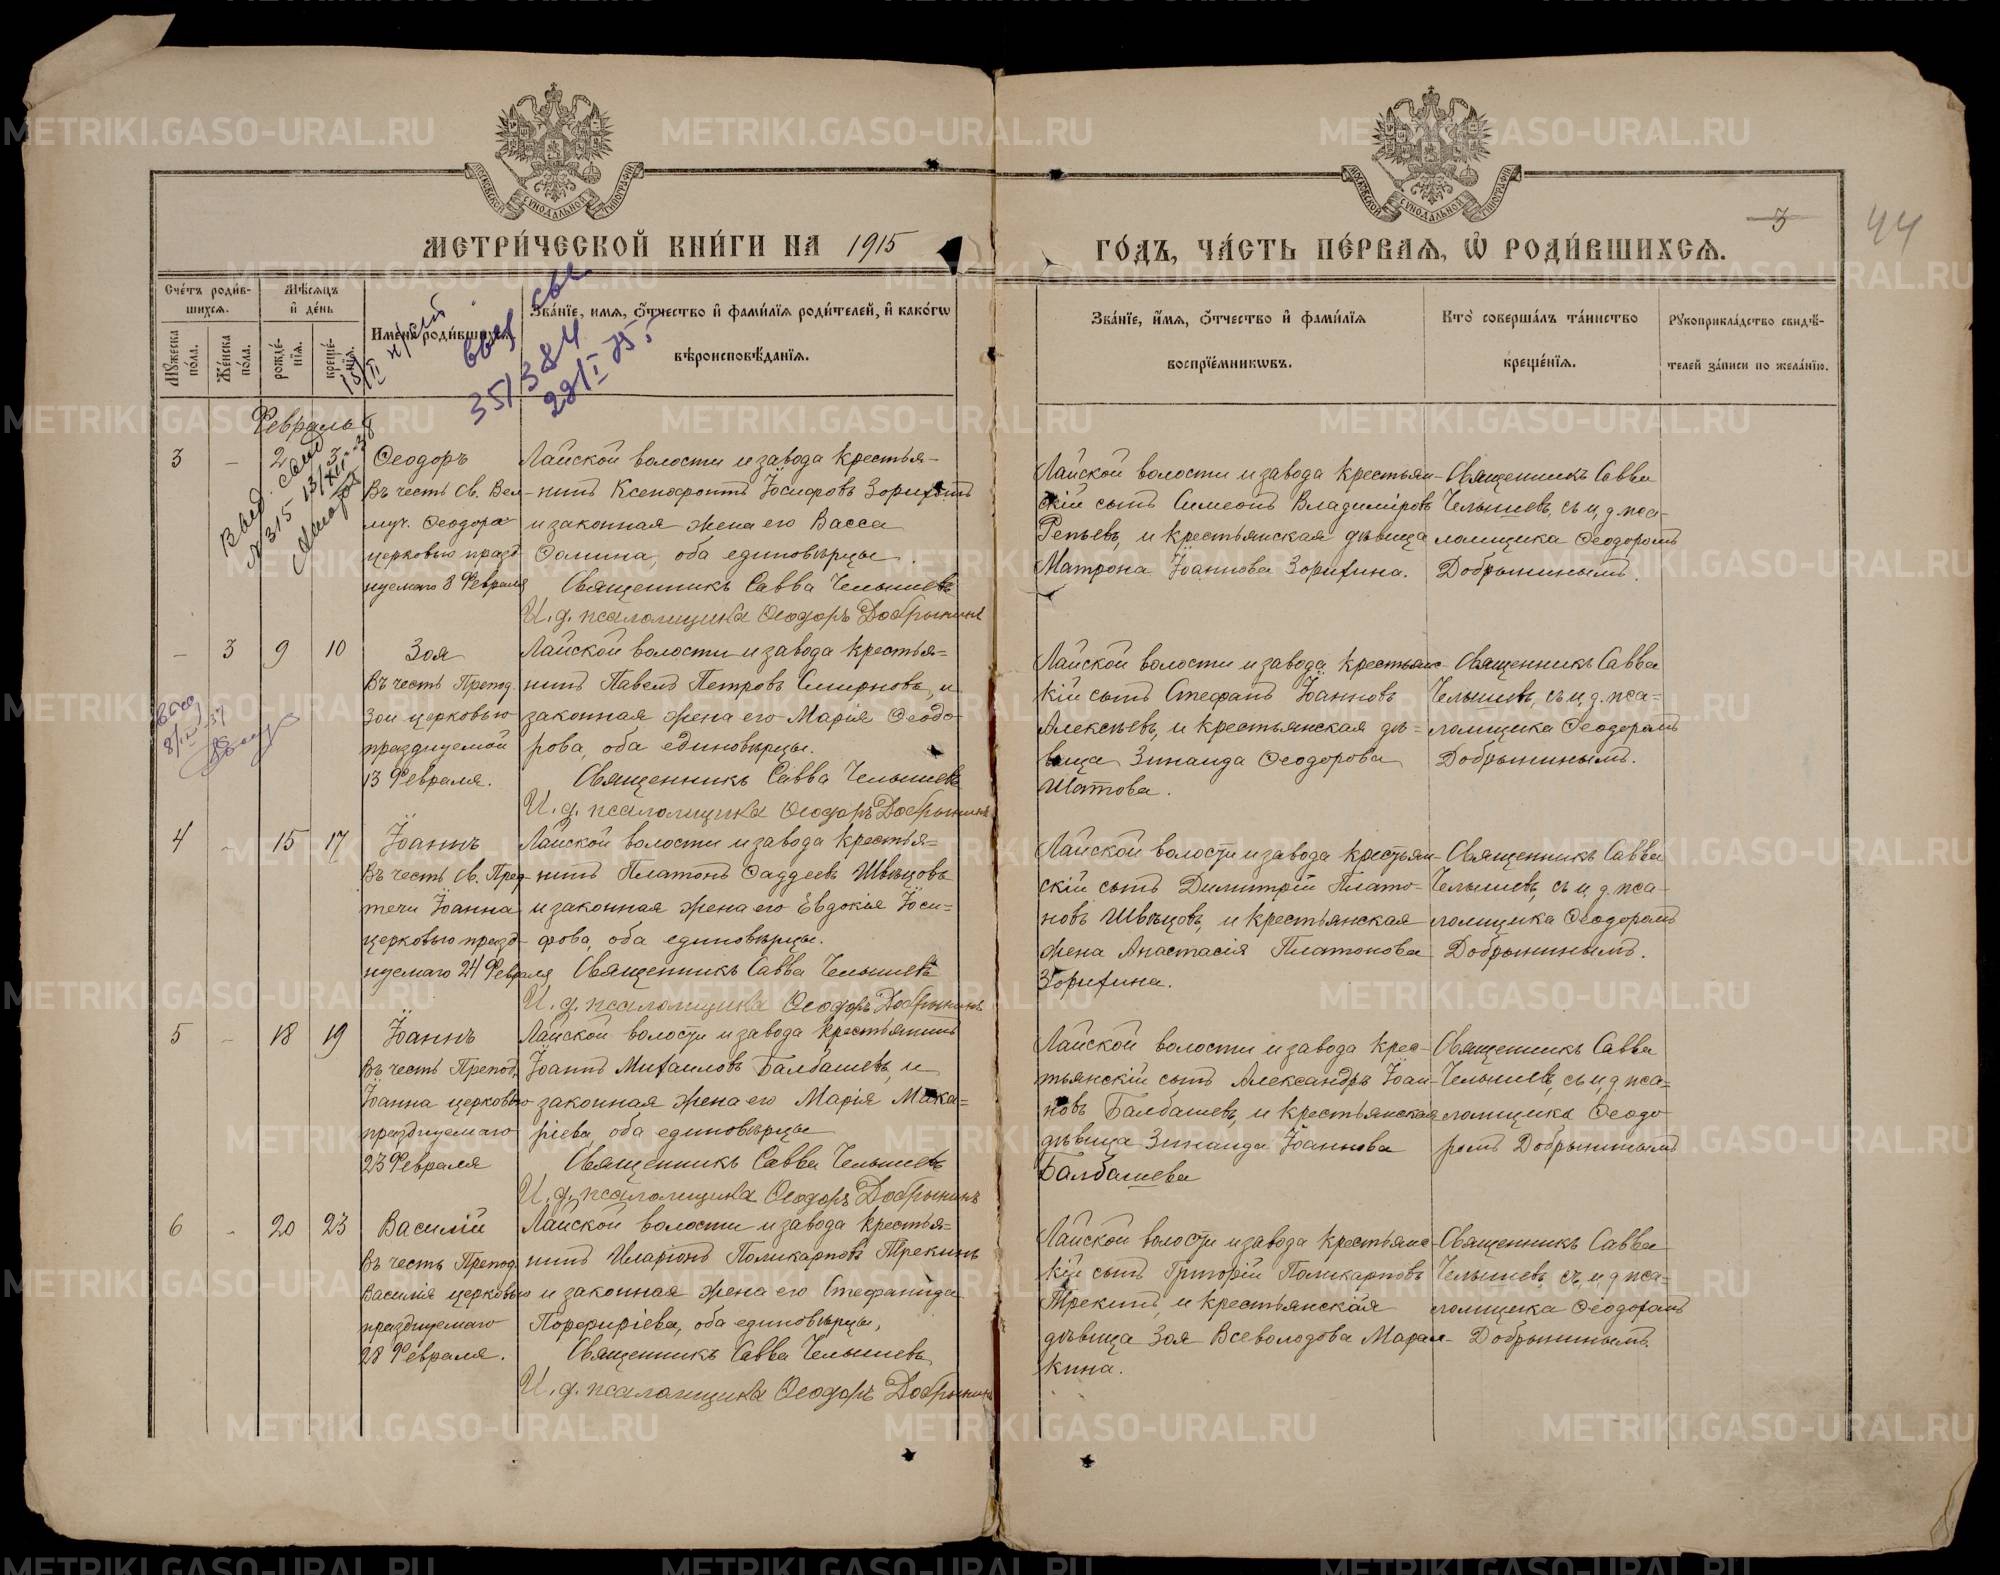 МЕТРИ́ЧЕСКОЙ КНИ́ГИ НА 1915
ГО́ДЪ, ЧА́СТЬ ПЕ́РВАѦ, Ѽ РОДИ́ВШИХСѦ.
3
44
Сче́тъ роди́в-
шихсѧ.
Мѣ́сѧцъ
и҆ де́нь
Имена̀ роди́вшихсѧ.
Зва́нїе, и҆мѧ, ѻ҆́тчество и҆ фами́лїѧ роди́телей, и҆ како́гѡ
вѣроисповѣ́данїѧ.
Мꙋ́жеска
по́ла.
Же́нска
по́ла.
рожде́-
нїѧ.
креще́-
нїѧ.
Зва́нїе, и҆́мѧ, ѻ҆́тчество и҆ фами́лїѧ
воспрїе́мникѡвъ.
Кто̀ соверша́лъ та́инство
креще́нїѧ.
Рꙋкоприкла́дство свидѣ́-
телей за́писи по жела́нїю.
35/384
Февраль
3 - 2 3
Ѳеодоръ
Въ честь Св. Вел-
муч. Ѳеодора
церковью празд-
нуемаго 8 Февраля
Лайской волости и завода крестья-
нинъ Ксенофонтъ Іосифовъ Зорихинъ
и законная жена его Васса
Ѳомина, оба единовѣрцы
Священникъ Савва Челышевъ
И. д. псаломщика Ѳеодоръ Добрынинъ
Лайской волости и завода крестьян-
скій сынъ Симеонъ Владиміровъ
Репьевъ, и крестьянская дѣвица
Матрона Іоаннова Зорихина.
Священникъ Савва
Челышевъ, съ и. д. пса-
ломщика Ѳеодоромъ
Добрынинымъ.
- 3 9 10
Зоя
Въ честь Препод.
Зои церковью
празднуемой
13 Февраля.
Лайской волости и завода крестья-
нинъ Павелъ Петровъ Смирновъ, и
законная жена его Марія Ѳеодо-
рова, оба единовѣрцы.
Священникъ Савва Челышевъ
И. д. псаломщика Ѳеодоръ Добрынинъ
Лайской волости и завода крестьянс-
кій сынъ Стефанъ Іоанновъ
Алексѣевъ, и крестьянская дѣ-
вица Зинаида Ѳеодорова
Шатова.
Священникъ Савва
Челышевъ, съ и. д. пса-
ломщика Ѳеодоромъ
Добрынинымъ.
4 - 15 17
Іоаннъ
Въ честь Св. Пред-
течи Іоанна
церковью празд-
нуемаго 24 Февраля
Лайской волости и завода крестья-
нинъ Платонъ Ѳаддеевъ Швецовъ
и законная жена его Евдокія Іоси-
фова, оба единовѣрцы.
Священникъ Савва Челышевъ
И. д. псаломщика Ѳеодоръ Добрынинъ
Лайской волости и завода крестьян-
скій сынъ Димитрій Плато-
новъ Швецовъ, и крестьянская
жена Анастасія Платонова
Зорихина.
Священникъ Савва
Челышевъ, съ и. д. пса-
ломщика Ѳеодоромъ
Добрынинымъ.
5 - 18 19
Іоаннъ
Въ честь Препод.
Іоанна церковью
празднуемаго
23 Февраля
Лайской волости и завода крестьянинъ
Іоаннъ Михаиловъ Балбашевъ, и
законная жена его Марія Мака-
ріева, оба единовѣрцы
Священникъ Савва Челышевъ
И. д. псаломщика Ѳеодоръ Добрынинъ
Лайской волости и завода крес-
тьянскій сынъ Александръ Іоан-
новъ Балбашевъ, и крестьянская
дѣвица Зинаида Іоаннова
Балбашева
Священникъ Савва
Челышевъ, съ и. д. пса-
ломщика Ѳеодо-
ромъ Добрынинымъ
6 - 20 23
Василій
Въ честь Препод.
Василія церковью
празднуемаго
28 Февраля.
Лайской волости и завода крестья-
нинъ Иларіонъ Поликарповъ Трекинъ
и законная жена его Стефанида
Порфиріева, оба единовѣрцы,
Священникъ Савва Челышевъ
И. д. псаломщика Ѳеодоръ Добрынинъ
Лайской волости и завода крестьянс-
кій сынъ Григорій Поликарповъ
Трекинъ, и крестьянская
дѣвица Зоя Всеволодова Марам-
кина.
Священникъ Савва
Челышевъ, съ и. д. пса-
ломщика Ѳеодоромъ
Добрынинымъ.
METRIKI.GASO-URAL.RU